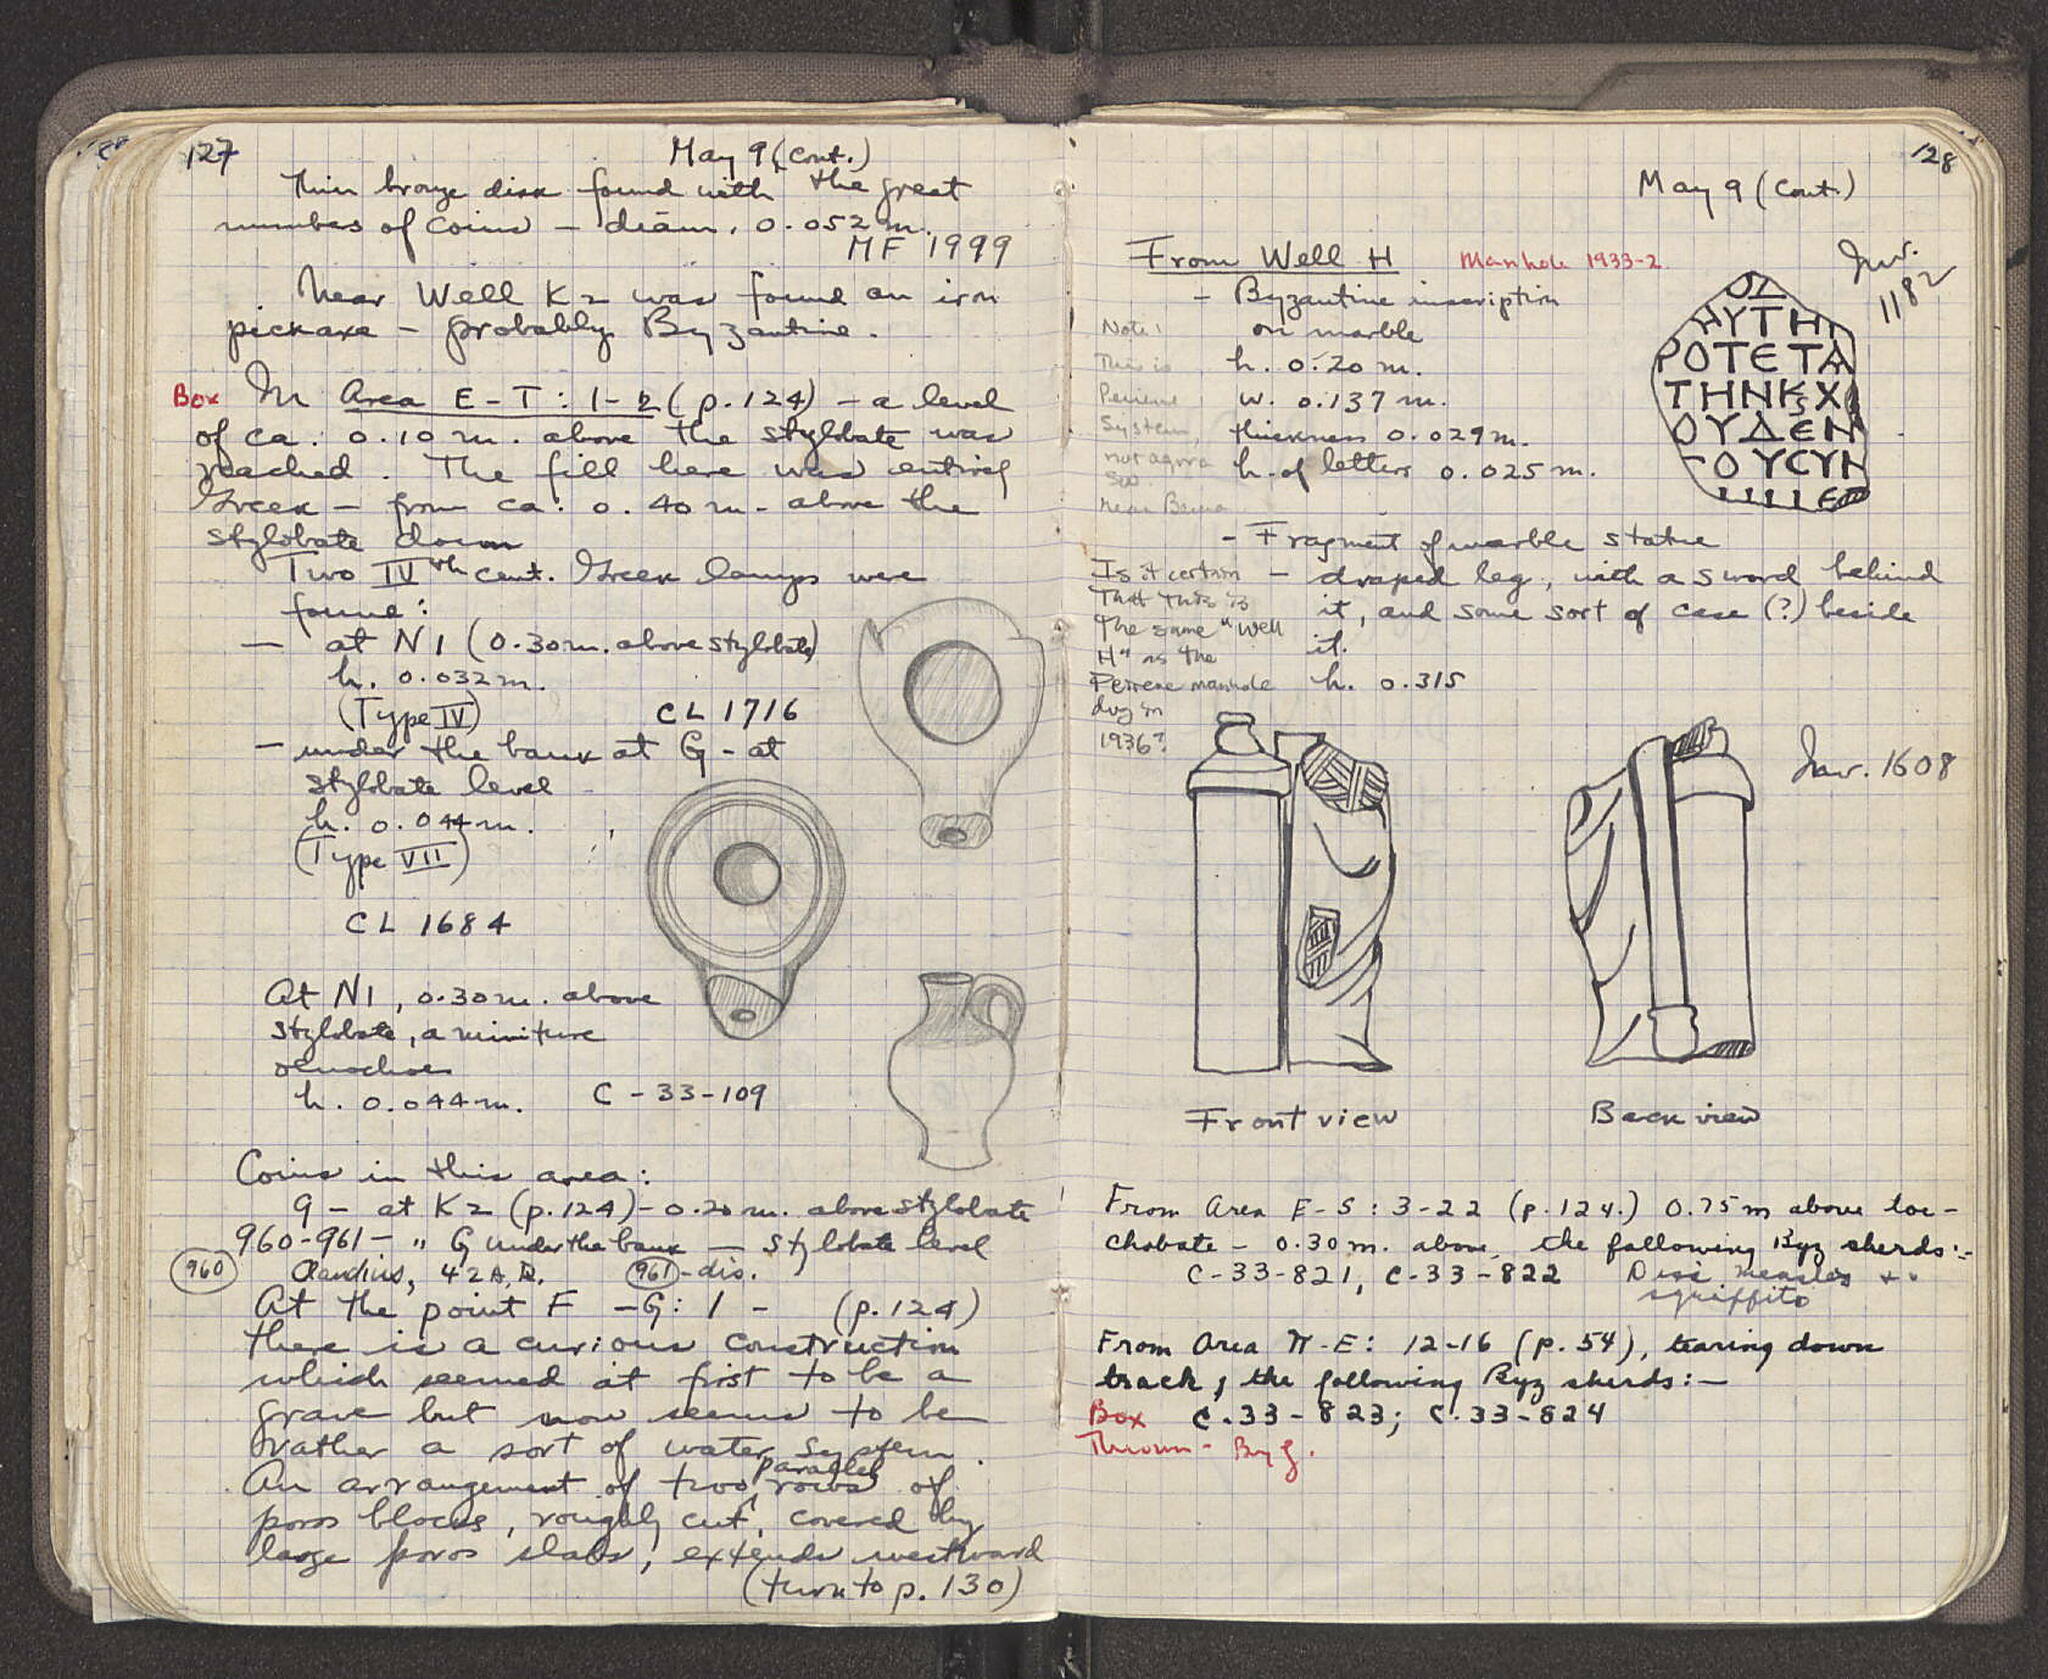 127
May 9 (cont.)
Thin bronze disk found with the great
number of coins — diam. 0.052 m.
MF 1999
Near Well K2 was found an iron
pickaxe — probably Byzantine.
Box In Area E-T: 1-2 (p. 124) — a level
of ca. 0.10 m. above the stylobate was
reached. The fill here was entirely
Greek — from ca. 0.40 m. above the
stylobate down
Two IVth cent. Greek lamps were
found:
— at N1 (0.30 m. above stylobate)
h. 0.032 m.
(Type IV) CL 1716
— under the bank at G — at
stylobate level
h. 0.044 m.
(Type VII)
CL 1684
At N1, 0.30 m. above
stylobate, a miniture
oenochoe
h. 0.044 m. C-33-109
Coins in this area:
9 — at K2 (p. 124) — 0.20 m. above stylobate
960-961 — " G under the bank — stylobate level
960 Claudius, 42 A.D. 961 - dis.
At the point F-G: 1 — (p. 124)
there is a curious construction
which seemed at first to be a
grave but now seems to be
rather a sort of water system.
An arrangement of two parallel rows of
poros blocks, roughly cut, covered by
large poros slabs, extends westward
(turn to p. 130)
128
May 9 (cont.)
From Well H Manhole 1933-2
Inv.
1182
— Byzantine inscription
on marble
h. 0.20 m.
w. 0.137 m.
thickness 0.029 m.
h. of letters 0.025 m.
Note:
This is
Peirene
System,
not agora
SW.
near Bema
ΗΥΤΗΡ
ΡΟΤΕΤΑ
ΤΗΝΚΧ
ΟΥΔΕΝ
ΤΟΥCΥΝ
— Fragment of marble statue
— draped leg, with a sword behind
it, and some sort of case (?) beside
it.
h. 0.315
Is it certain
that this is
the same "Well
H" as the
Peirene manhole
dug in
1936?
Inv. 1608
Front view
Back view
From Area E-S: 3-22 (p. 124.) 0.75 m above toe-
chobate - 0.30 m. above, the following Byz sherds:-
C-33-821, C-33-822 Disc. measles +
sgraffito
From Area π-E: 12-16 (p. 54), tearing down
track, the following Byz sherds:—
Box C-33-823; C-33-824
Thrown - Byz.